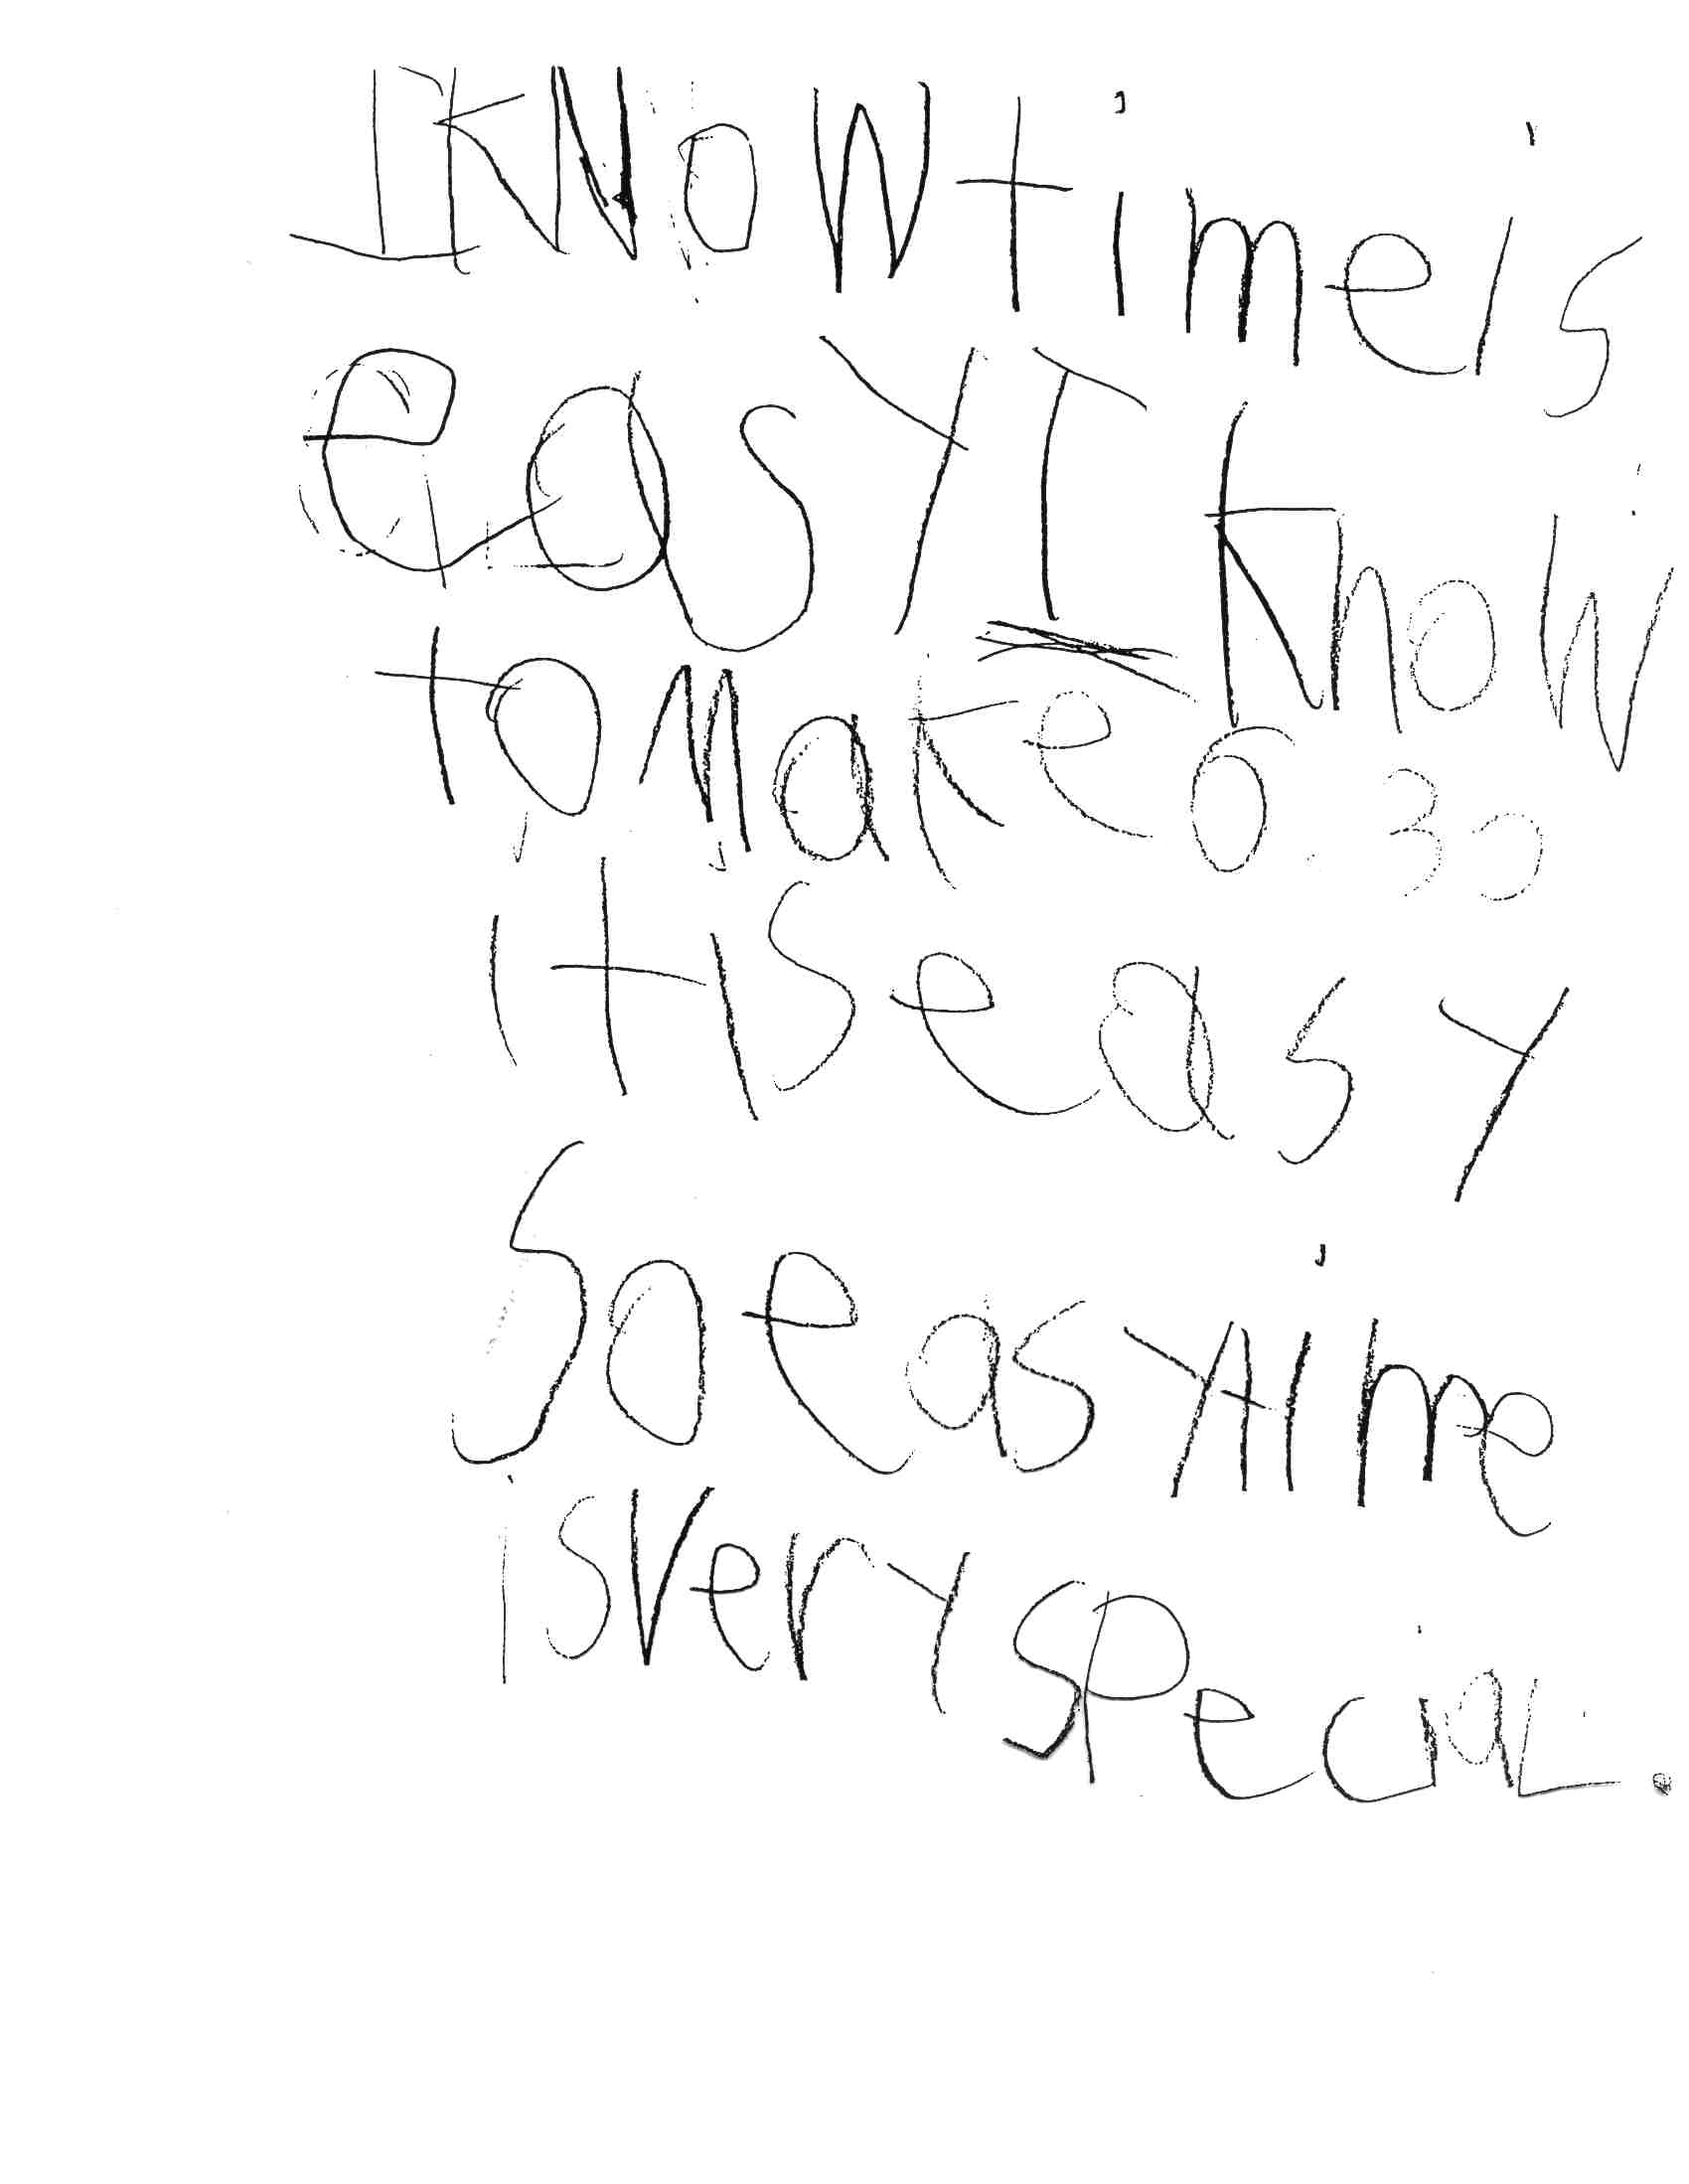 I KNow time is
easy I know
to make 6:30
it is easy
So easy time
is very special.